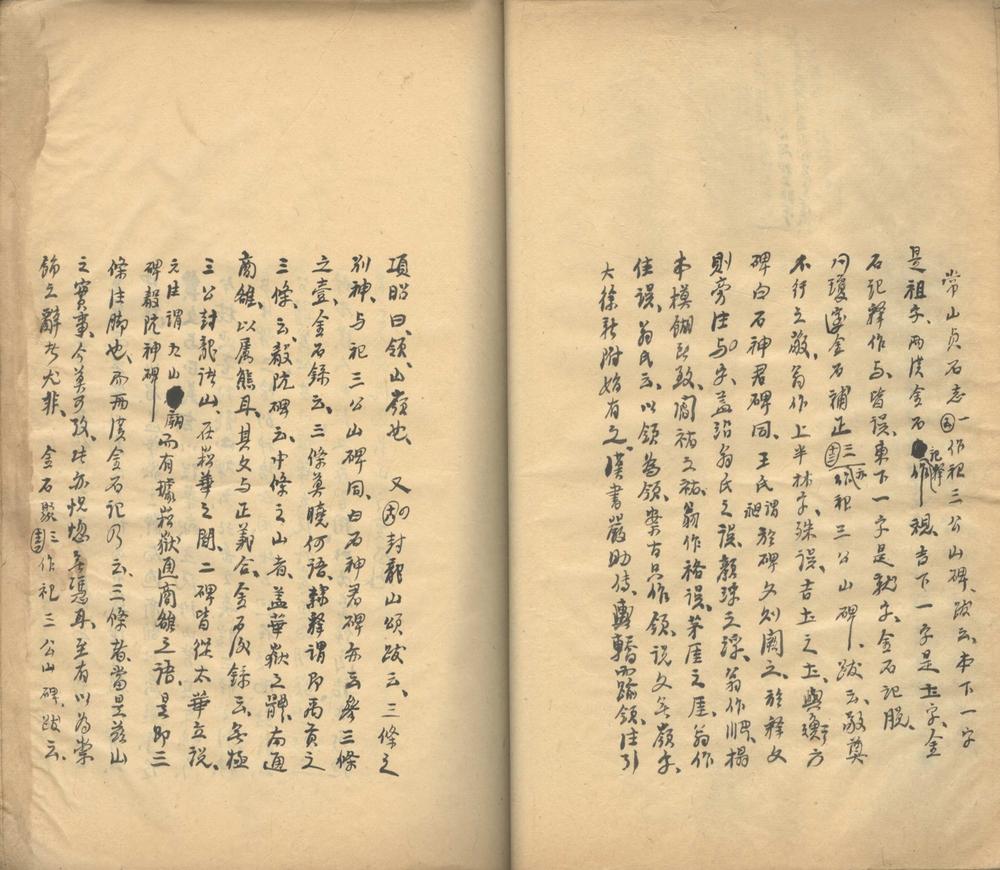 常山貞石志一作祀三公山碑、跋云、本下一字
是祖字、兩漢金石記釋作視、吉下一字是土字、金
石記釋作与、皆誤、車下一字是軌字、金石記脫、
金石補正三作祀三公山碑、跋云、敬奠
不行之敬、翁作上半林字、殊誤、吉土之土、與衡方
碑白石神君碑同、王氏謂於碑文則闕之、於釋文
則旁注与字、蓋沿翁氏之誤、翁作
本模餬致、閻祐之祐、翁作裕誤、茅厓之厓、翁作
佳誤、翁氏云、以領為領、案古只作領、說文無嶺字、
大徐新附始有之、漢書嚴助傳、輿轎而踰領、注引
項昭曰、領、山嶺也、又封龍山頌跋云、三條之
別神、与祀三公山碑同、白石神君碑亦云參三條
之壹、金石錄云、三條莫曉何語、隸釋謂即禹貢之
三條、云、殽阬碑云、中條之山者、蓋華嶽之體、南通
商雒、以屬熊耳、其文与正義合、金石後錄云、無極
三公封龍諸山、在嵩華之間、二碑皆從太華立說、
碑殽阬神碑而有據嵩嶽通商雒之語、是即三
條注腳也、而兩漢金石記乃云、三條者、當是茲山
之實事、今莫可攷、此亦怳惚無憑耳、至有以為崇
飾之辭者尤非、金石聚三作祀三公山碑、跋云、